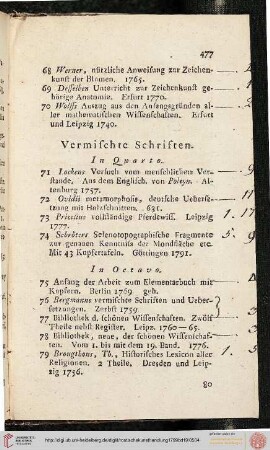 477
68 Werner, nützliche Anweisung zur Zeichen-
kunst der Blumen. 1765.
69 Desselben Unterricht zur Zeichenkunst ge-
hörige Anatomie. Erfurt 1770.
70 Wolfs Auszug aus den Anfangsgründen al-
ler mathematischen Wissenschaften. Erfurt
und Leipzig 1740.
Vermischte Schriften.
In Quarto.
71 Lockens Versuch vom menschlichen Ver-
stande. Aus dem Englisch. von Poleyn. Al-
tenburg 1757.
72 Ovidii metamorphosis, deutsche Ueberse-
tzung mit Holzschnitten. 631.
73 vollständige Pferdewiss. Leipzig
1777.
74 Schröters Selenotopographische Fragmente
zur genauen Kenntniss der Mondfläche etc.
Mit 43 Kupfertafeln. Göttingen 1791.
In Octavo.
75 Anfang der Arbeit zum Elementarbuch mit
Kupfern. Berlin 1769 geh.
76 Bergmanns vermischte Schriften und Ueber-
setzungen. Zerbst 1759.
77 Bibliothek d. schönen Wissenschaften. Zwölf
Theile nebst Register. Leipz. 1760—65.
78 Bibliothek, neue, der schönen Wissenschaf-
ten. Vom 1. bis mit dem 19. Band. 1776.
79 Broughtons, Th., Historisches Lexicon aller
Religionen. 2 Theile. Dresden und Leip-
zig 1756.
80